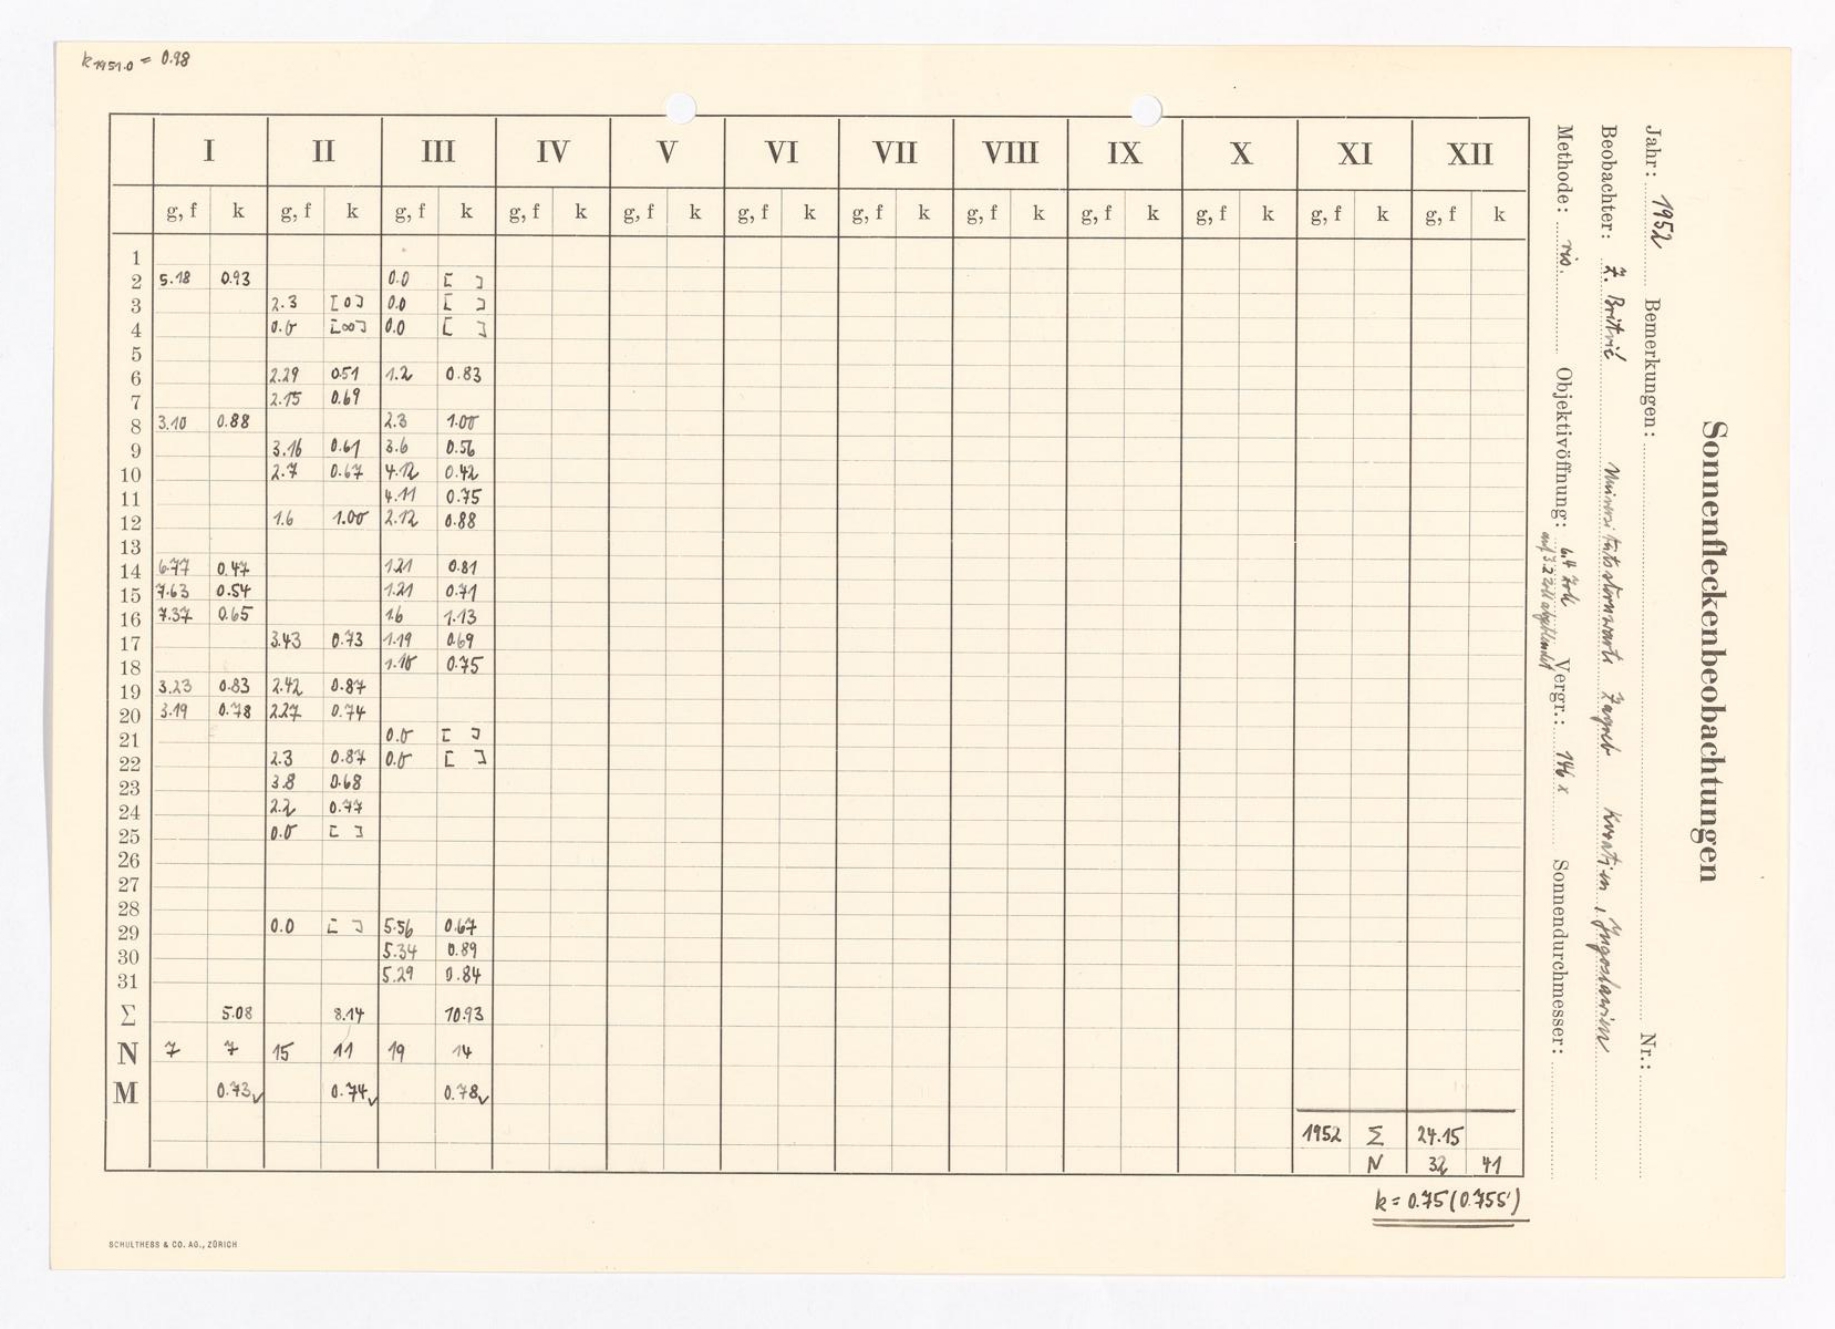 k1951.0 = 0.98
Sonnenfleckenbeobachtungen
Jahr: 1952 Bemerkungen: Nr.:
Beobachter: Z. Britvić Universitätssternwarte Zagreb Kroatien, Jugoslavien
Methode: vis. Objektivöffnung: 6.4 Zoll auf 3.2 Zoll abgeblendet Vergr.: 146 x Sonnendurchmesser:
I II III IV V VI VII VIII IX X XI XII
g, f k g, f k g, f k g, f k g, f k g, f k g, f k g, f k g, f k g, f k g, f k g, f k
1
2 5.18 0.93 0.0 [ ]
3 2.3 [0] 0.0 [ ]
4 0.0 [∞] 0.0 [ ]
5
6 2.29 0.51 1.2 0.83
7 2.15 0.69
8 3.10 0.88 2.3 1.00
9 3.16 0.61 3.6 0.56
10 2.7 0.67 4.12 0.42
11 4.11 0.75
12 1.6 1.00 2.12 0.88
13
14 6.77 0.47 1.21 0.81
15 7.63 0.54 1.21 0.71
16 7.37 0.65 1.6 1.13
17 3.43 0.73 1.19 0.69
18 1.18 0.75
19 3.23 0.83 2.42 0.87
20 3.19 0.78 2.27 0.74
21 0.0 [ ]
22 2.3 0.87 0.0 [ ]
23 3.8 0.68
24 2.2 0.77
25 0.0 [ ]
26
27
28
29 0.0 [ ] 5.56 0.67
30 5.34 0.89
31 5.29 0.84
Σ 5.08 8.14 10.93
N 7 7 15 11 19 14
M 0.73✓ 0.74✓ 0.78✓
1952 Σ 24.15
N 32 41
k = 0.75 (0.755)
SCHULTHESS & CO. AG., ZÜRICH